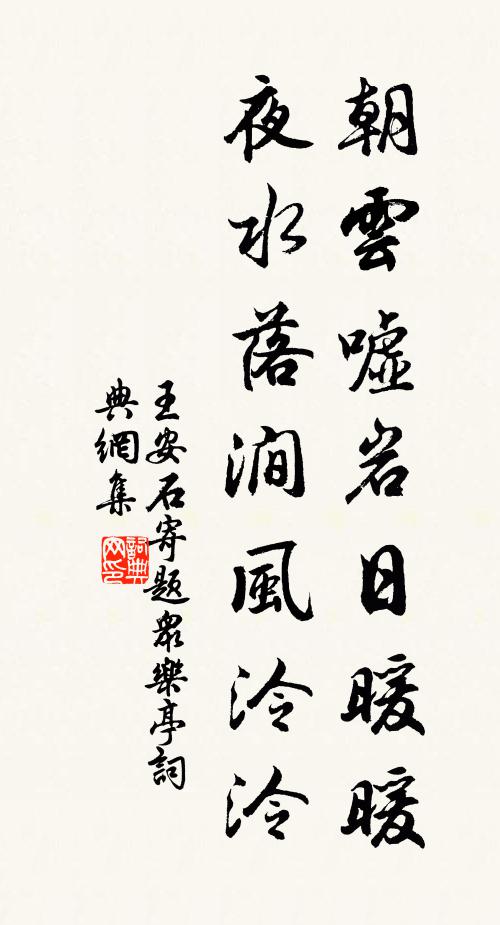 朝雲噓岩日暖暖
夜水落澗風泠泠
王安石寄題眾樂亭詞
典網集
詞典
网印